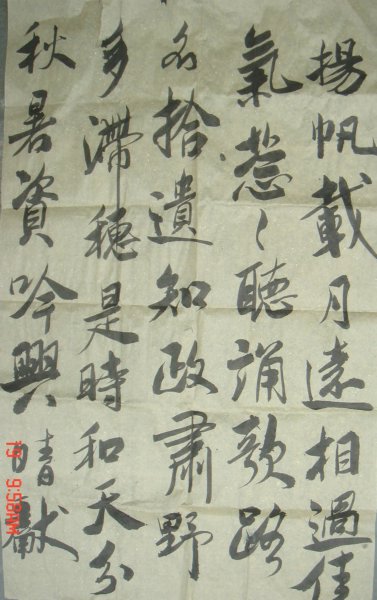 揚帆載月遠相過佳
氣蔥〻聽誦歌路
不拾遺知政肅野
多滯穗是時和天分
秋暑資吟興晴獻
19 9:58AM